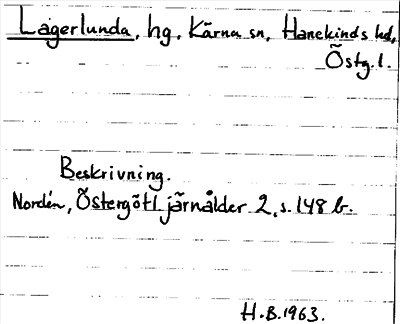 Lagerlunda, hg, Kärna sn, Hanekinds hd,
Östg. l.
Beskrivning.
Nordén, Östergötl järnålder 2, s. 148 b.
H.B. 1963.